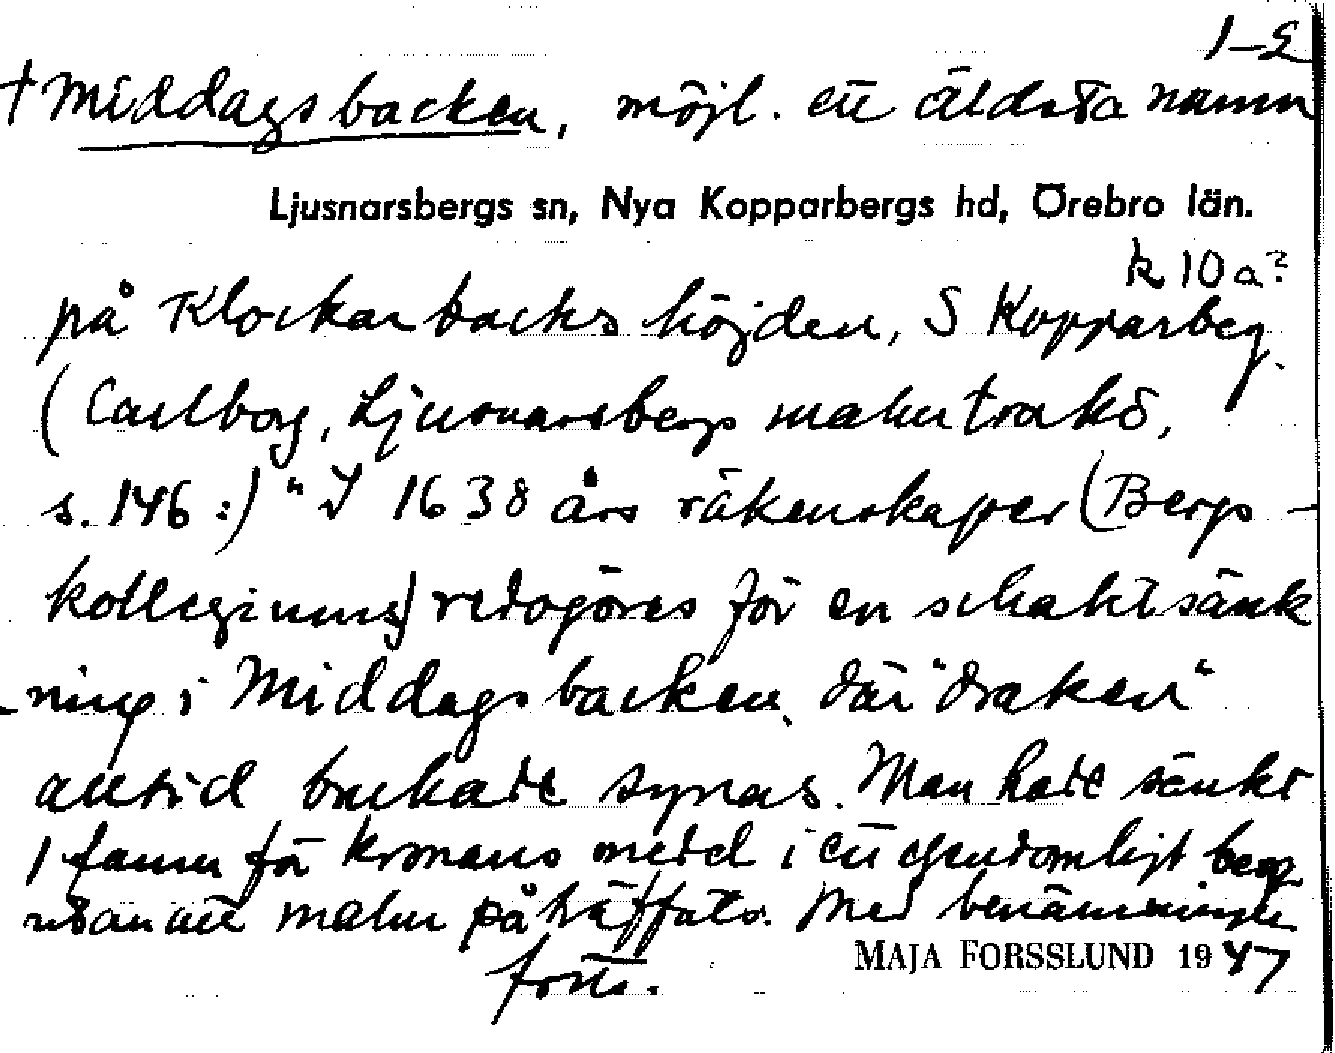 1-2
+ Middagsbacken, möjl. ett äldsta namn
Ljusnarsbergs sn, Nya Kopparbergs hd, Örebro län.
k 10 a?
på Klockarbackshöjden, S Kopparbeg.
(Carlborg, Ljusnarsbergs malmtrakt,
s. 146:) "I 1638 års räkenskaper (Bergs-
kollegiums) redogöres för en schaktsänk
-ning i Middagsbacken, där "draken"
alltid brukade synas. Man hade sänkt
1 famn för kronans medel i ett egendomligt berg
utan att malm påträffats. Med benämningen
forts.
MAJA FORSSLUND 1947